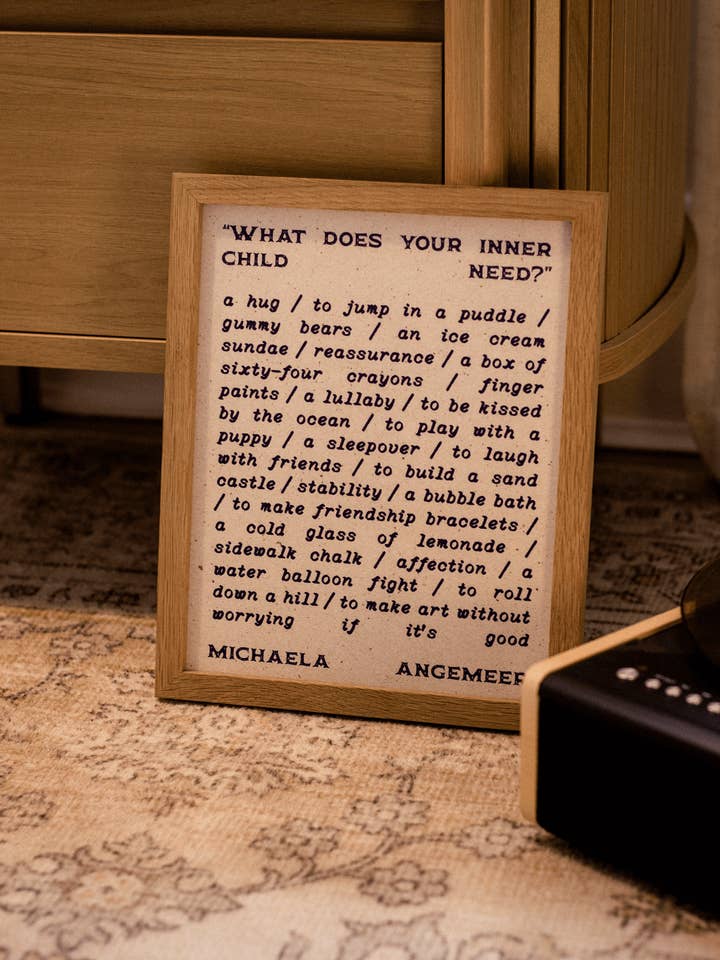 “WHAT DOES YOUR INNER
CHILD NEED?”
a hug / to jump in a puddle /
gummy bears / an ice cream
sundae / reassurance / a box of
sixty-four crayons / finger
paints / a lullaby / to be kissed
by the ocean / to play with a
puppy / a sleepover / to laugh
with friends / to build a sand
castle / stability / a bubble bath
/ to make friendship bracelets /
a cold glass of lemonade /
sidewalk chalk / affection / a
water balloon fight / to roll
down a hill / to make art without
worrying if it's good
MICHAELA ANGEMEER